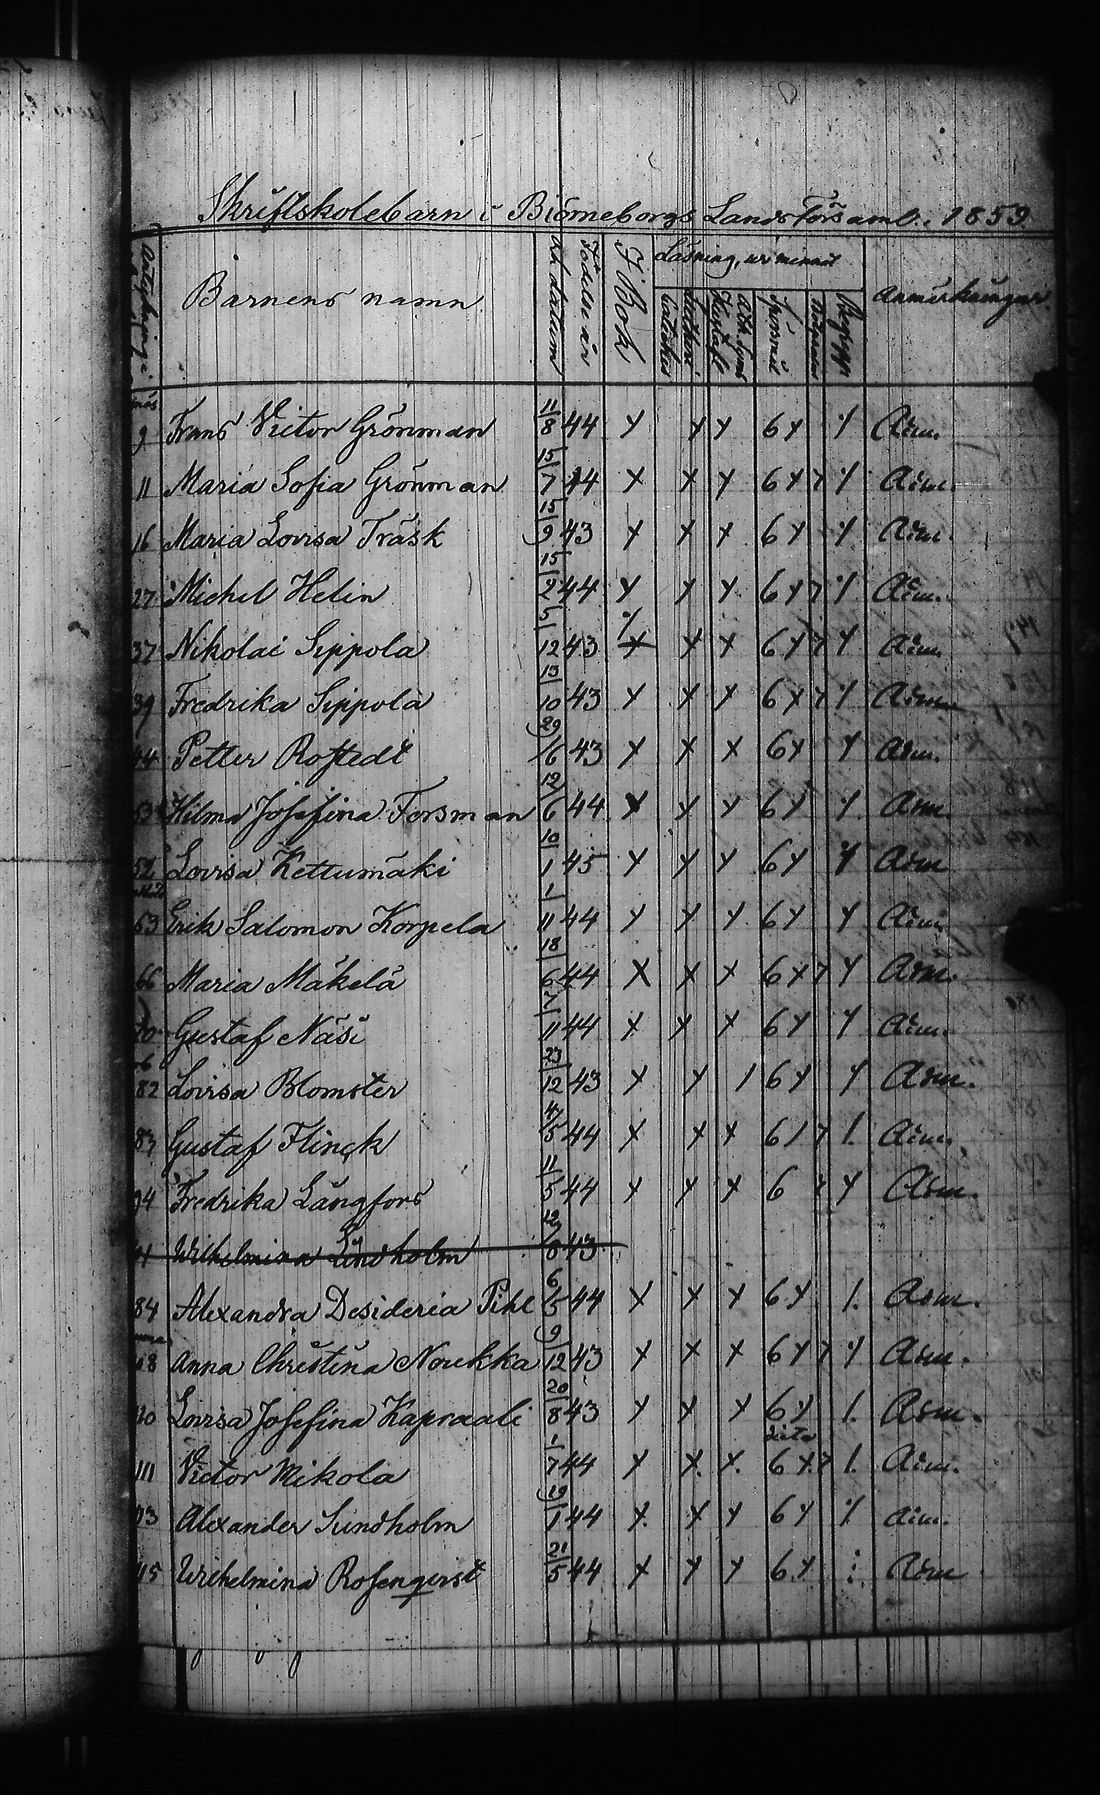 Skriftskolebarn i Björneborgs Lands Förs aml. 1859.
Barnens namn Födelse år och datum I Bok Läsning, ur minnet Spörsmål Begrepp Anmärkningar
9 Frans Victor Grönman 11/8 44 x x x 6 x x Adm.
11 Maria Sofia Grönman 15/7 44 x x x 6 x 7 x Adm.
16 Maria Lovisa Träsk 15/9 43 x x x 6 x x Adm.
27 Michel Helin 15/2 44 x x x 6 x 7 x Adm.
37 Nikolai Sippola 5/12 43 x x x 6 x 7 x Adm.
39 Fredrika Sippola 13/10 43 x x x 6 x 7 x Adm.
44 Petter Rostedt 29/6 43 x x x 6 x x Adm.
Hilma Josefina Forsman 12/6 44 x x x 6 x x Adm.
52 Lovisa Kettumäki 10/1 45 x x x 6 x x Adm
63 Erik Salomon Korpela 1/11 44 x x x 6 x x Adm.
66 Maria Mäkelä 18/6 44 x x x 6 x 7 x Adm.
70 Gustaf Näsi 7/11 44 x x x 6 x x Adm.
82 Lovisa Blomster 23/12 43 x x / 6 x x Adm.
83 Gustaf Flinck 4/5 44 x x x 6 / 7 /. Adm.
94 Fredrika Långfors 11/5 44 x x x 6 x x Adm.
Wilhelmina Lindholm 12/8 43
84 Alexandra Desideria Pihl 6/5 44 x x x 6 x /. Adm.
118 Anna Christina Noukka 9/12 43 x x x 6 x 7 x Adm.
Lovisa Josefina Kapraali 20/8 43 x x x 6 x /. Adm.
111 Victor Mikola 1/7 44 x x. x. 6 x. 7 /. Adm.
Alexander Sundholm 19/1 44 x. x x 6 x x Adm.
Wilhelmina Rosenqvist 21/5 44 x x x 6 x : Adm